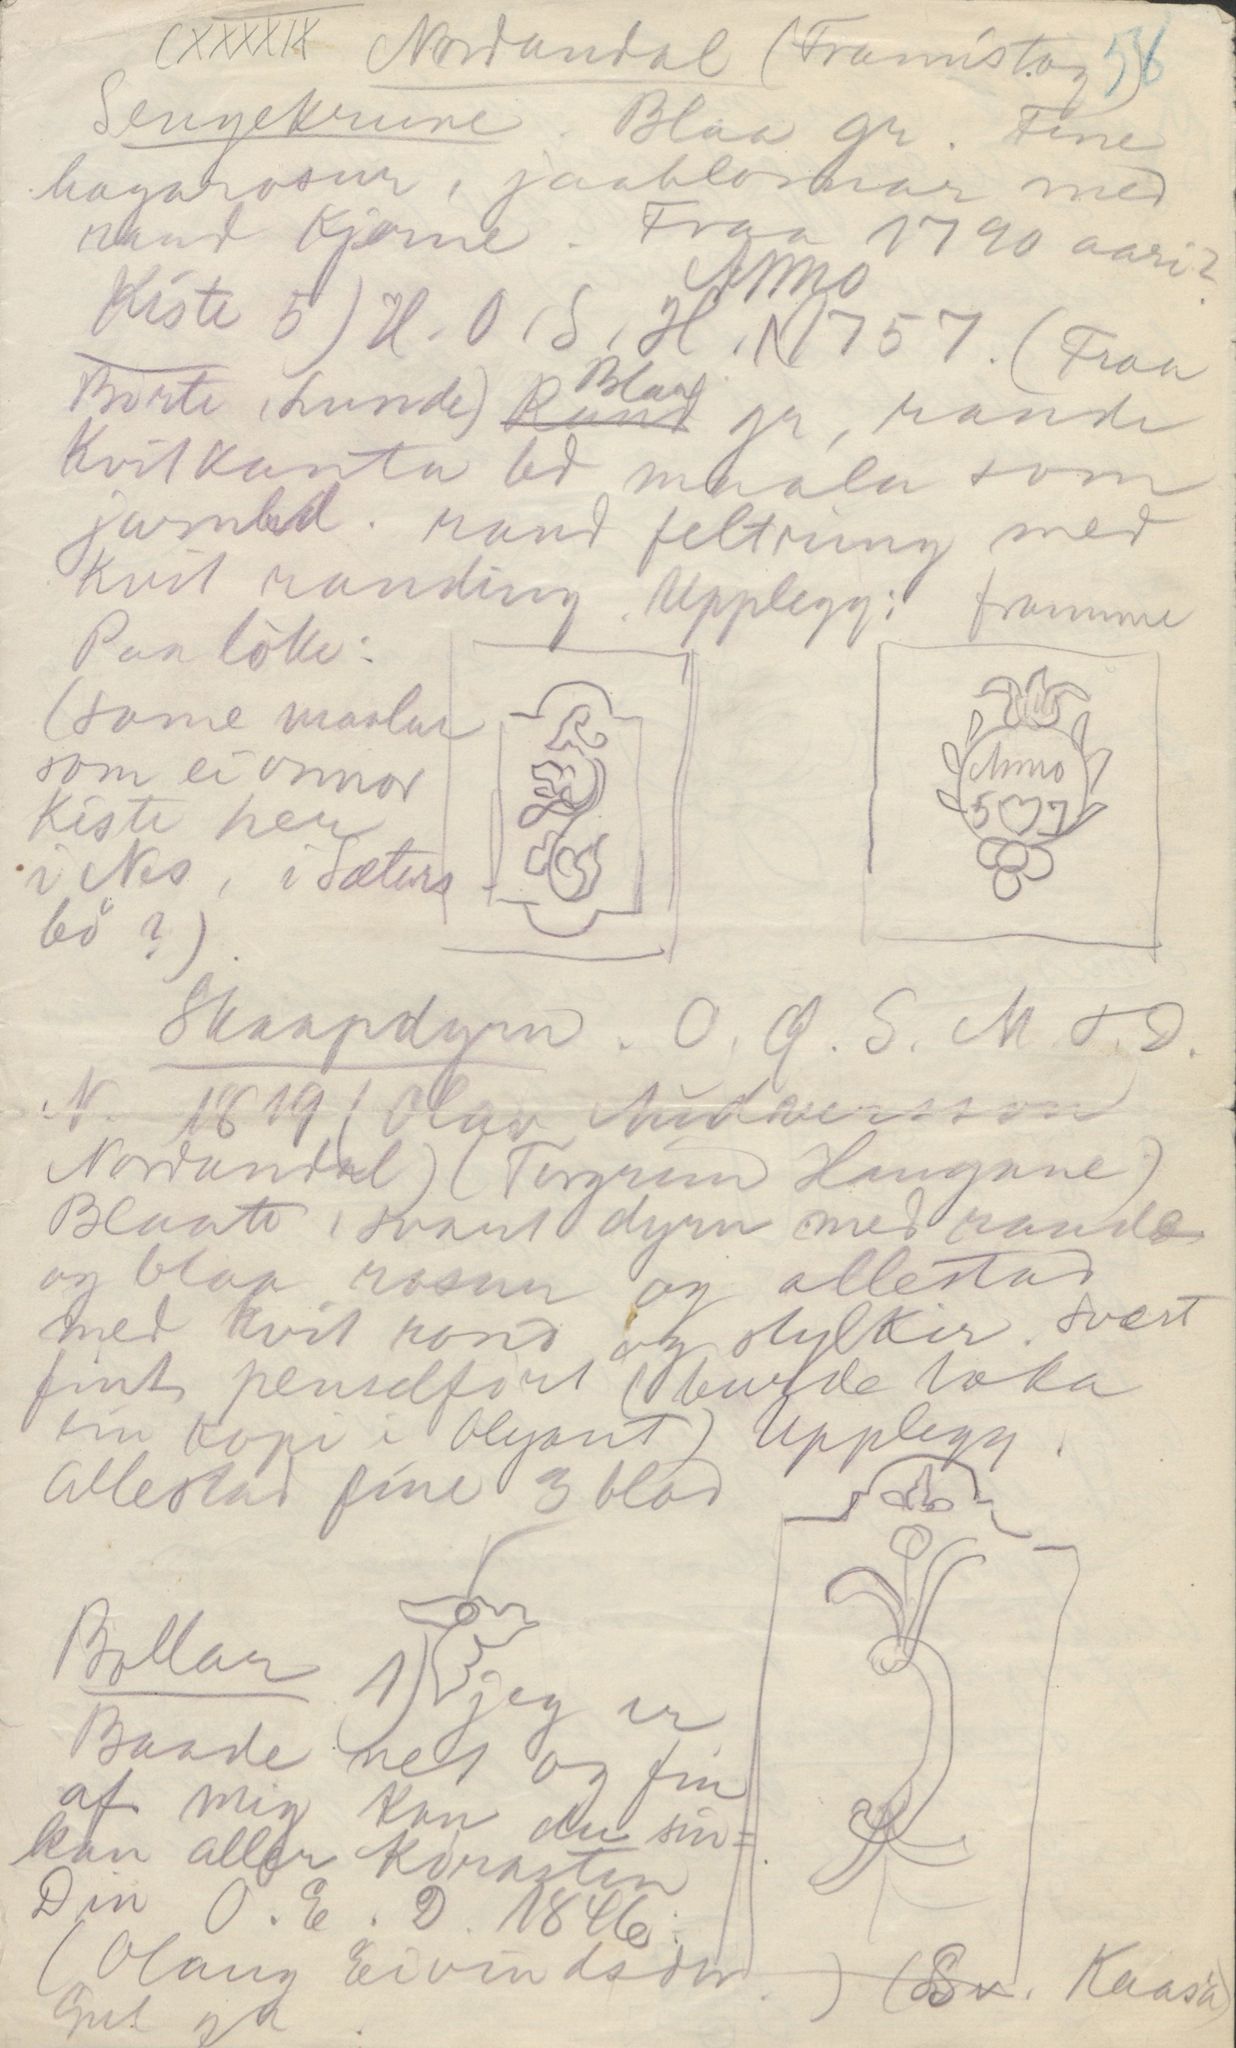 CXXXXIX Nordandal (Framistog) 56
Sengekrune. Blaa gr. Fine
hagarosur, jaablomar med
raud kjerne. Fraa 1790 aari?
Anno
Kiste 5) H. O. S. H. N 1757. (Fraa
Börte, Lunde) Raud Blaa gr, raude
kvitkanta bd maala som
jarnbd. raud feltring med
kvit randing. Upplegg: framme
Paa löke:
(same maalar
som ei onnor
kiste her
i Nes, i Sæters-
bö?)
Anno
5 7
Skaapdyrn. O. A. S. M. T. D.
N. 1819 (Olav Audversson
Nordandal) (Torgrim Haugane)
Blaate, svart dyrn med raude
og blaa rosur og allestad
med kvit rand og stylkir. svært
fint penselfört (burde taka
ein kopi i Olgant) Upplegg.
Allestad fine 3 blad
Bollar 1) jeg er
Baade net og fin
af mig kan du sin=
kan aller körasten
Din O. E. D. 1846.
(Olaug Eivindsdtr.) (Sv. Kaasa)
Gul gr.